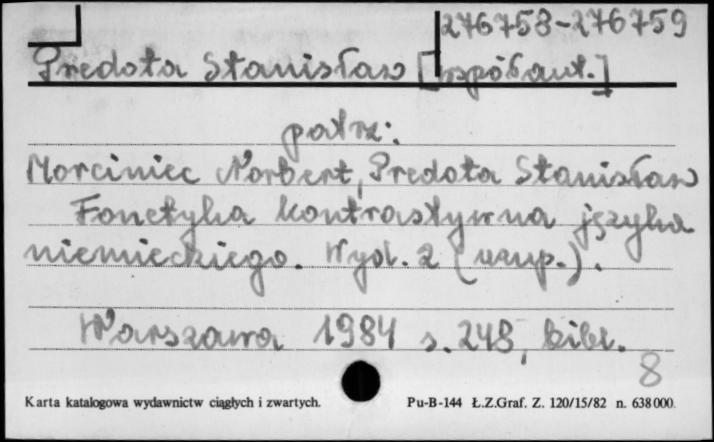 276758-276759
Prędota Stanisław [współaut.]
patrz:
Morciniec Norbert, Prędota Stanisław
Fonetyka kontrastywna języka
niemieckiego. Wyd. 2 (uzup.).
Warszawa 1984 s. 248, bibl.
8
Karta katalogowa wydawnictw ciągłych i zwartych. Pu-B-144 Ł.Z.Graf. Z. 120/15/82 n. 638000.